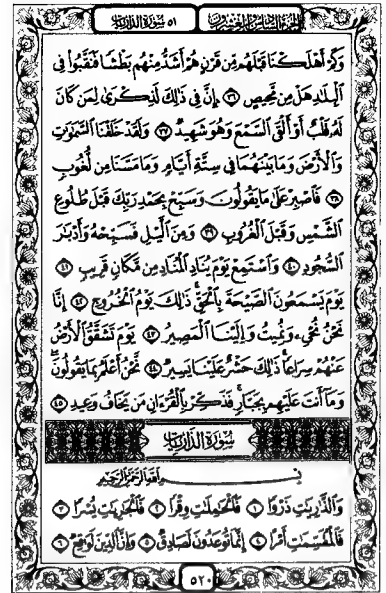 الجزء السادس والعشرون ٥١ سورة الذاريات
وَكَمْ أَهْلَكْنَا قَبْلَهُم مِّن قَرْنٍ هُمْ أَشَدُّ مِنْهُم بَطْشًا فَنَقَّبُوا۟ فِى
ٱلْبِلَٰدِ هَلْ مِن مَّحِيصٍ ٣٦ إِنَّ فِى ذَٰلِكَ لَذِكْرَىٰ لِمَن كَانَ
لَهُۥ قَلْبٌ أَوْ أَلْقَى ٱلسَّمْعَ وَهُوَ شَهِيدٌ ٣٧ وَلَقَدْ خَلَقْنَا ٱلسَّمَٰوَٰتِ
وَٱلْأَرْضَ وَمَا بَيْنَهُمَا فِى سِتَّةِ أَيَّامٍ وَمَا مَسَّنَا مِن لُّغُوبٍ
٣٨ فَٱصْبِرْ عَلَىٰ مَا يَقُولُونَ وَسَبِّحْ بِحَمْدِ رَبِّكَ قَبْلَ طُلُوعِ
ٱلشَّمْسِ وَقَبْلَ ٱلْغُرُوبِ ٣٩ وَمِنَ ٱلَّيْلِ فَسَبِّحْهُ وَأَدْبَٰرَ
ٱلسُّجُودِ ٤٠ وَٱسْتَمِعْ يَوْمَ يُنَادِ ٱلْمُنَادِ مِن مَّكَانٍ قَرِيبٍ ٤١
يَوْمَ يَسْمَعُونَ ٱلصَّيْحَةَ بِٱلْحَقِّ ذَٰلِكَ يَوْمُ ٱلْخُرُوجِ ٤٢ إِنَّا
نَحْنُ نُحْىِۦ وَنُمِيتُ وَإِلَيْنَا ٱلْمَصِيرُ ٤٣ يَوْمَ تَشَقَّقُ ٱلْأَرْضُ
عَنْهُمْ سِرَاعًا ذَٰلِكَ حَشْرٌ عَلَيْنَا يَسِيرٌ ٤٤ نَّحْنُ أَعْلَمُ بِمَا يَقُولُونَ
وَمَآ أَنتَ عَلَيْهِم بِجَبَّارٍ فَذَكِّرْ بِٱلْقُرْءَانِ مَن يَخَافُ وَعِيدِ ٤٥
سورة الذاريات
بِسْمِ ٱللَّهِ ٱلرَّحْمَٰنِ ٱلرَّحِيمِ
وَٱلذَّٰرِيَٰتِ ذَرْوًا ١ فَٱلْحَٰمِلَٰتِ وِقْرًا ٢ فَٱلْجَٰرِيَٰتِ يُسْرًا ٣
فَٱلْمُقَسِّمَٰتِ أَمْرًا ٤ إِنَّمَا تُوعَدُونَ لَصَادِقٌ ٥ وَإِنَّ ٱلدِّينَ لَوَٰقِعٌ ٦
٥٢٠